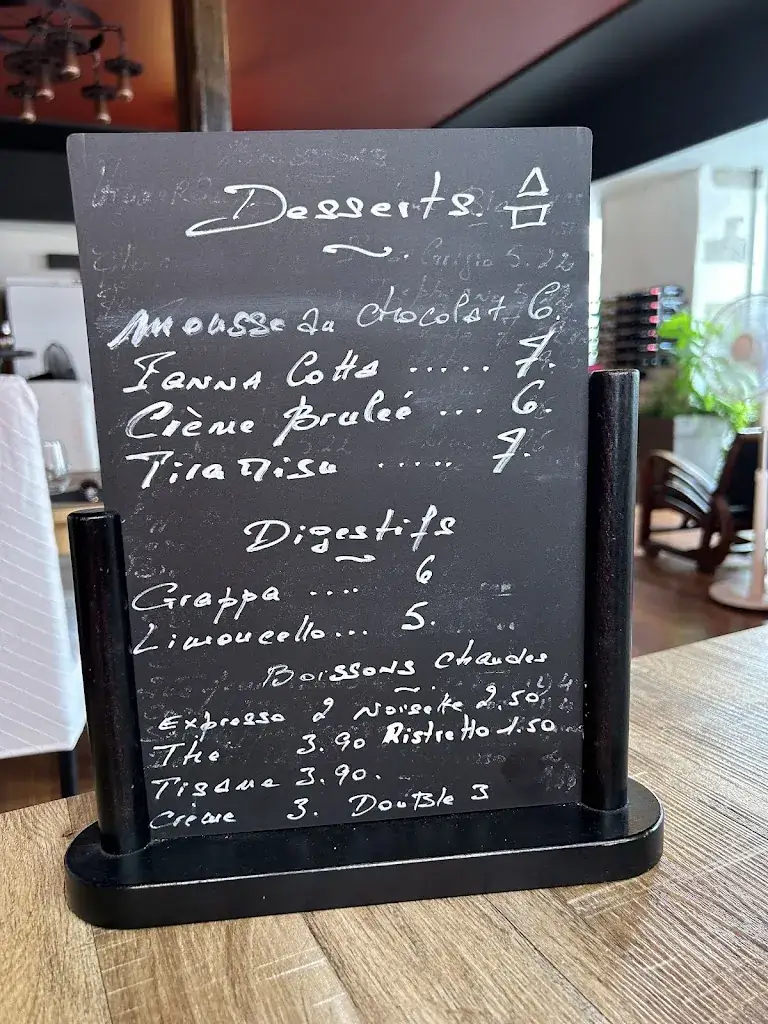 Desserts
Mousse au chocolat 6.
Panna Cotta ..... 7.
Crème Bruleé ... 6.
Tiramisu ..... 7.
Digestifs
Grappa .... 6
Limoncello... 5.
Boissons chaudes
Expresso 2 Noisette 2,50
The 3.90 Ristretto 1.50
Tisane 3.90.
Crème 3. Double 3